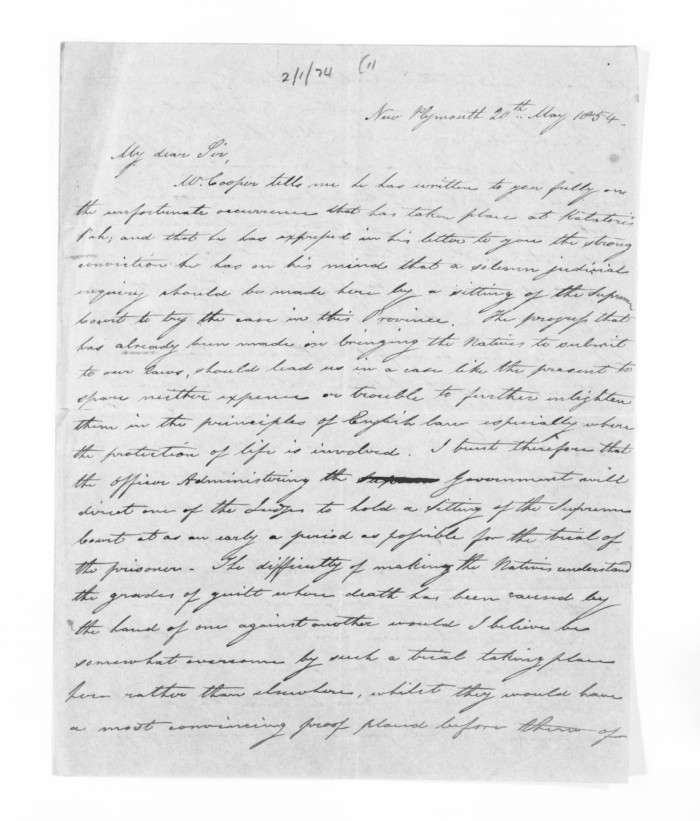 2/1/74 (11
New Plymouth 20th May 1854.
My dear Sir,
Mr Cooper tells me he has written to you fully on
the unfortunate occurrence that has taken place at Katatori's
Pah, and that he has expressed in his letter to you the strong
conviction he has on his mind that a solemn judicial
inquiry should be made here by a sitting of the Supreme
Court to try the case in this Province. The progress that
has already been made in bringing the Natives to submit
to our laws, should lead us in a case like the present to
spare neither expence or trouble to further enlighten
them in the principles of English law especially where
the protection of life is involved. I trust therefore that
the Officer Administering the Government will
direct one of the Judges to hold a Sitting of the Supreme
Court at as an early a period as possible for the trial of
the prisoner - The difficulty of making the Natives understand
the grades of guilt where death has been caused by
the hand of one against another would I believe be
somewhat overcome by such a trial taking place
here rather than elsewhere, whilst they would have
a most convincing proof placed before them of